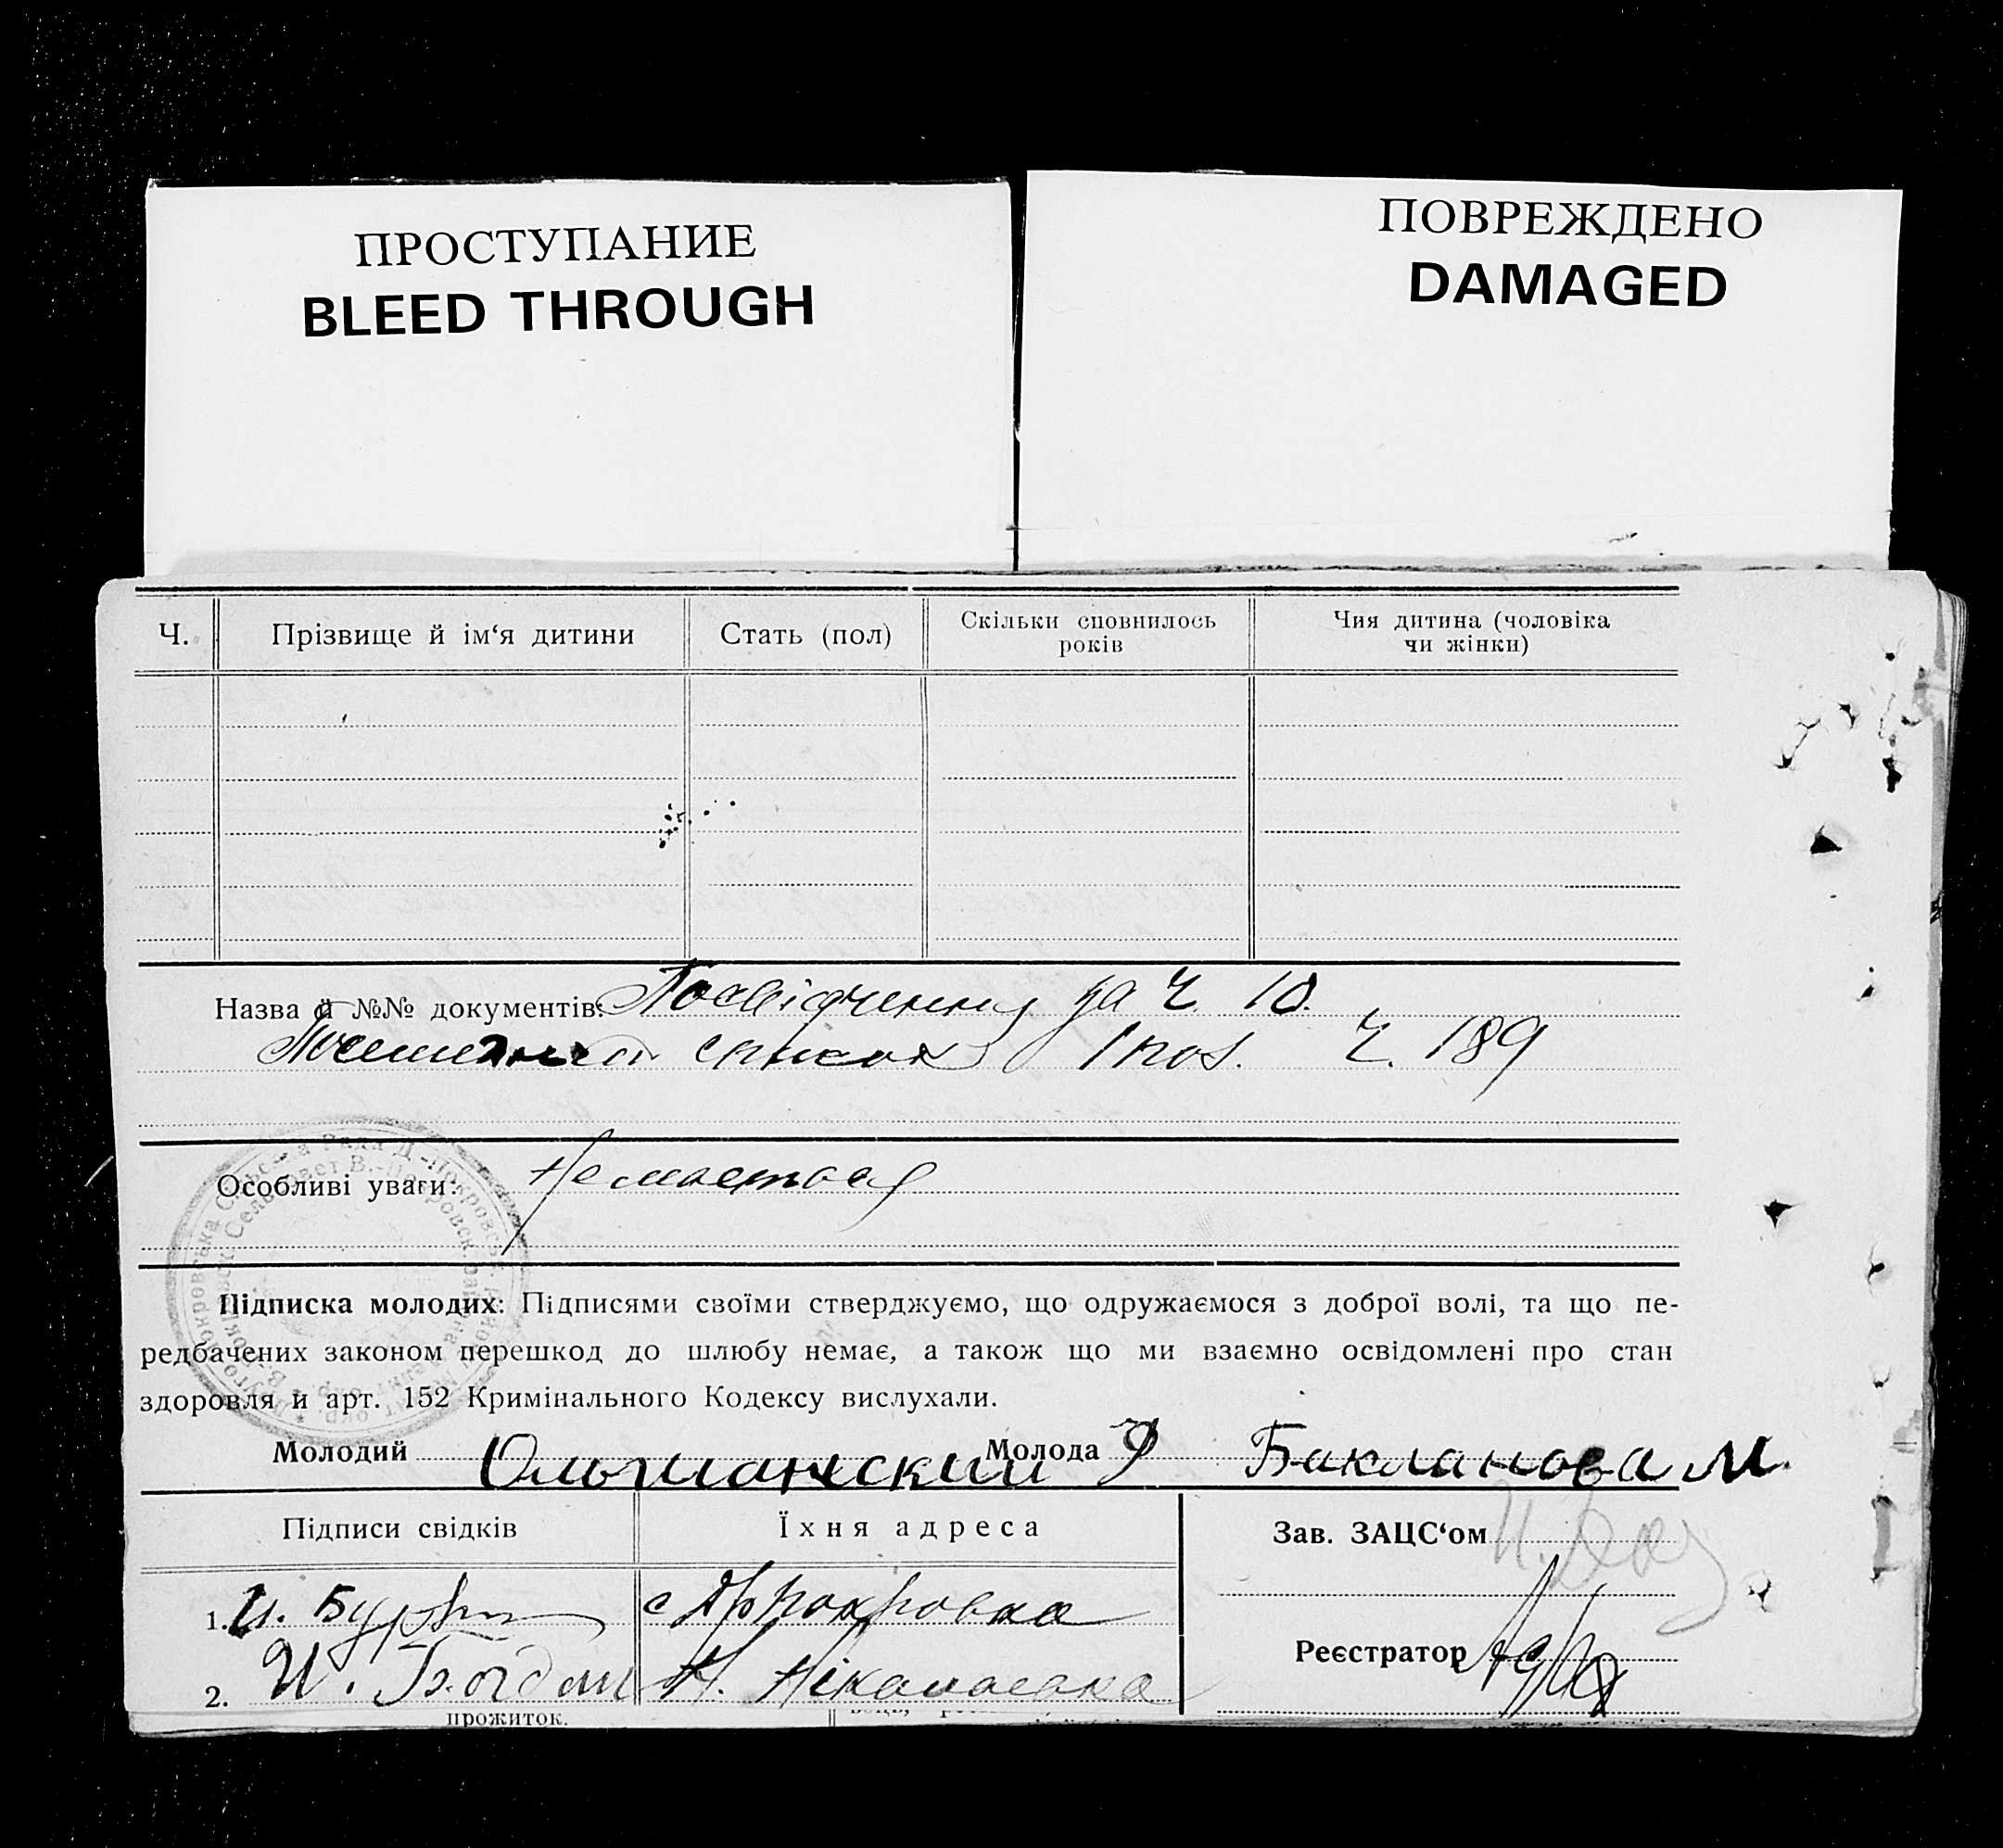 ПРОСТУПАНИЕ
BLEED THROUGH
ПОВРЕЖДЕНО
DAMAGED
Ч. Прізвище й ім‘я дитини Стать (пол) Скільки сповнилось років Чия дитина (чоловіка чи жінки)
Назва й №№ документів: Посвідчення за Ч. 10.
список Ч. 189
Особливі уваги: Немаеться
Підписка молодих: Підписями своїми стверджуємо, що одружаємося з доброї волі, та що пе-
редбачених законом перешкод до шлюбу немає, а також що ми взаємно освідомлені про стан
здоровля й арт. 152 Кримінального Кодексу вислухали.
Молодий Ольшанский Молода Бакланова М.
Підписи свідків Їхня адреса Зав. ЗАЦС‘ом
1. И.
Реєстратор
2. И. Богдан Н. Ніколаевка
прожиток.